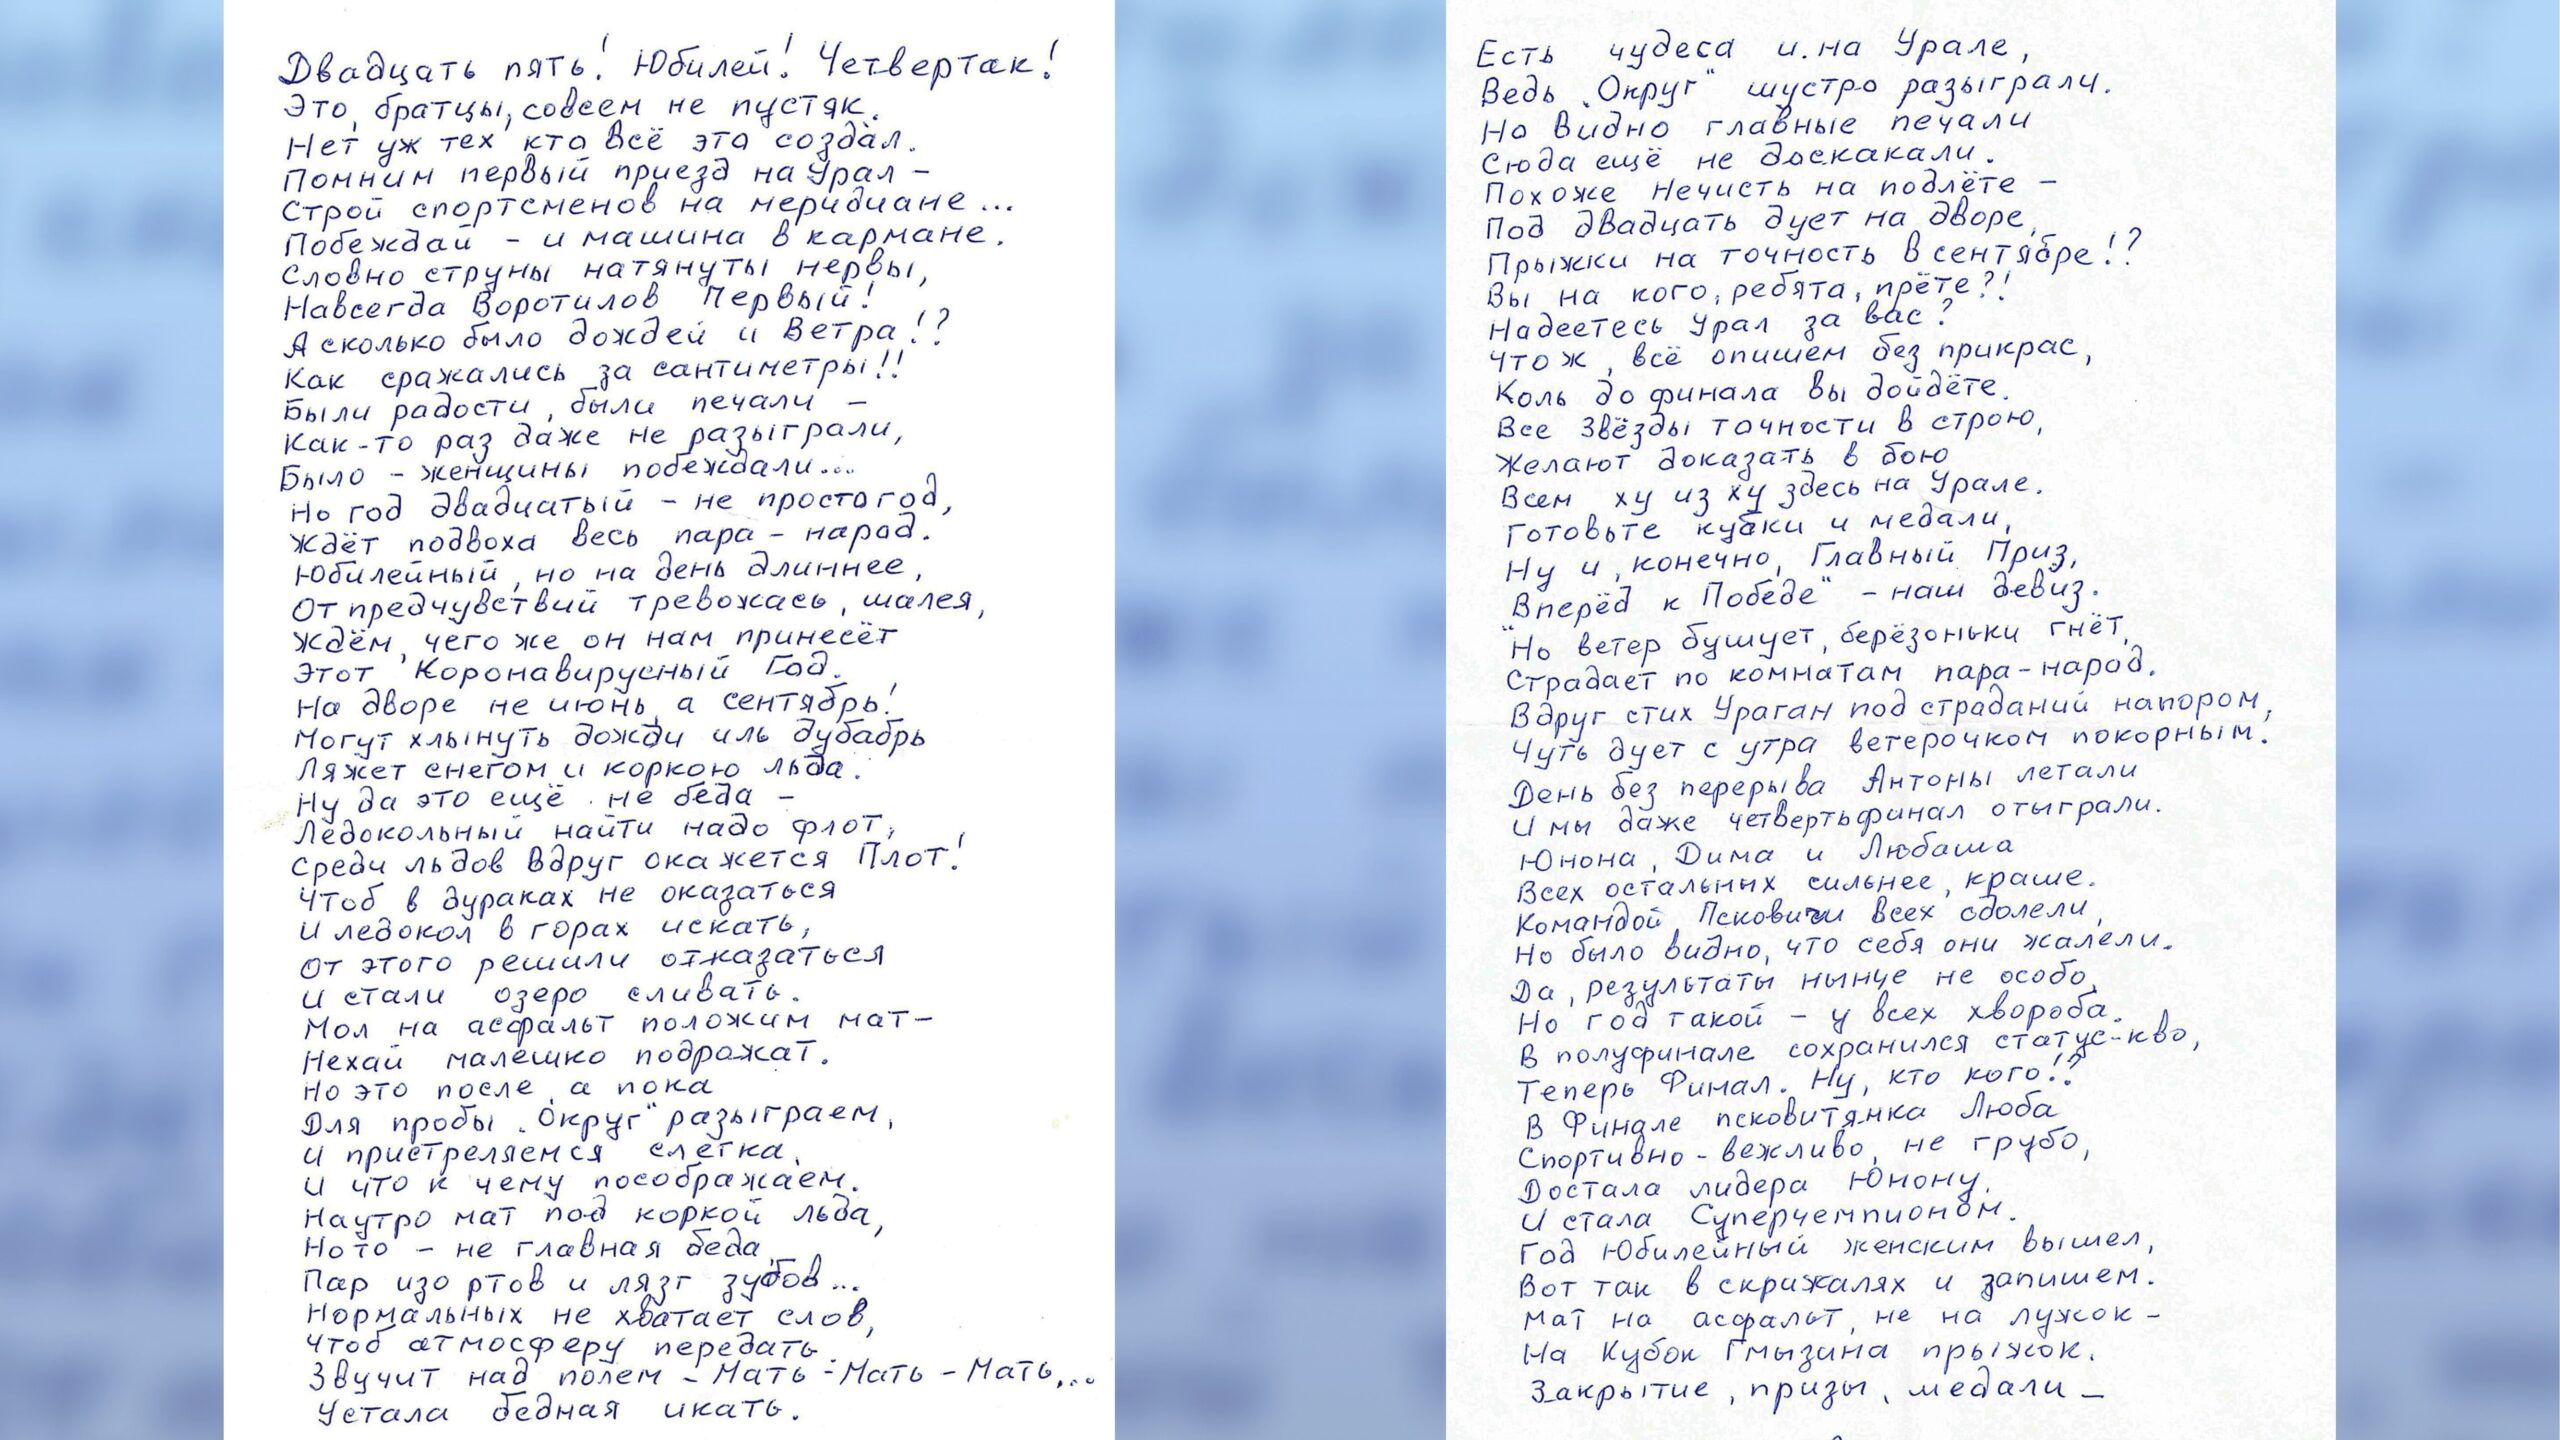 Двадцать пять! Юбилей! Четвертак!
Это, братцы, совсем не пустяк.
Нет уж тех, кто всё это создал.
Помним первый приезд на Урал –
Строй спортсменов на меридиане...
Побеждай – и машина в кармане.
Словно струны натянуты нервы,
Навсегда Воротилов Первый!
А сколько было дождей и Ветра!?
Как сражались за сантиметры!!
Были радости, были печали –
Как-то раз даже не разыграли,
Было – женщины побеждали...
Но год двадцатый – не просто год,
Ждёт подвоха весь пара-народ.
Юбилейный, но на день длиннее,
От предчувствий тревожась, шалея,
Ждём, чего же он нам принесёт
Этот Коронавирусный Год.
На дворе не июнь, а сентябрь!
Могут хлынуть дожди иль дубабрь
Ляжет снегом и коркою льда.
Ну да это ещё не беда –
Ледокольный найти надо флот,
Среди льдов Вдруг окажется Плот!
Чтоб в дураках не оказаться
И ледокол в горах искать,
От этого решили отказаться
И стали озеро сливать.
Мол на асфальт положим мат –
Нехай малешко подражат.
Но это после, а пока
Для пробы „Округ“ разыграем,
И пристреляемся слегка,
И что к чему посображаем.
Наутро мат под коркой льда,
Но то – не главная беда,
Пар изо ртов и лязг зубов...
Нормальных не хватает слов,
Чтоб атмосферу передать.
Звучит над полем – Мать – Мать – Мать...
Устала бедная икать.
Есть чудеса и на Урале,
Ведь „Округ“ шустро разыграли.
Но Видно главные печали
Сюда ещё не доскакали.
Похоже Нечисть на подлёте –
Под двадцать дует на дворе,
Прыжки на точность в сентябре!?
Вы на кого, ребята, прёте?!
Надеетесь Урал за вас?
Что ж, всё опишем без прикрас,
Коль до финала вы дойдёте.
Все Звёзды точности в строю,
Желают доказать в бою
Всем ху из ху здесь на Урале.
Готовьте кубки и медали,
Ну и, конечно, Главный Приз,
"Вперёд к Победе" – наш девиз.
Но ветер бушует, берёзоньки гнёт,
Страдает по комнатам пара-народ.
Вдруг стих Ураган под страданий напором,
Чуть дует с утра ветерочком покорным.
День без перерыва Антоны летали
И мы даже четвертьфинал отыграли.
Юнона, Дима и Любаша
Всех остальных сильнее, краше.
Командой Псковичи Всех одолели,
Но было видно, что себя они жалели.
Да, результаты нынче не особо,
Но год такой – у всех хвороба.
В полуфинале сохранился статус-кво,
Теперь Финал. Ну, кто кого!?
В Финале псковитянка Люба
Спортивно-вежливо, не грубо,
Достала лидера Юнону,
И стала Суперчемпионом.
Год Юбилейный женским вышел,
Вот так в скрижалях и запишем.
Мат на асфальт, не на лужок –
На Кубок Гмызина прыжок.
Закрытие, призы, медали –